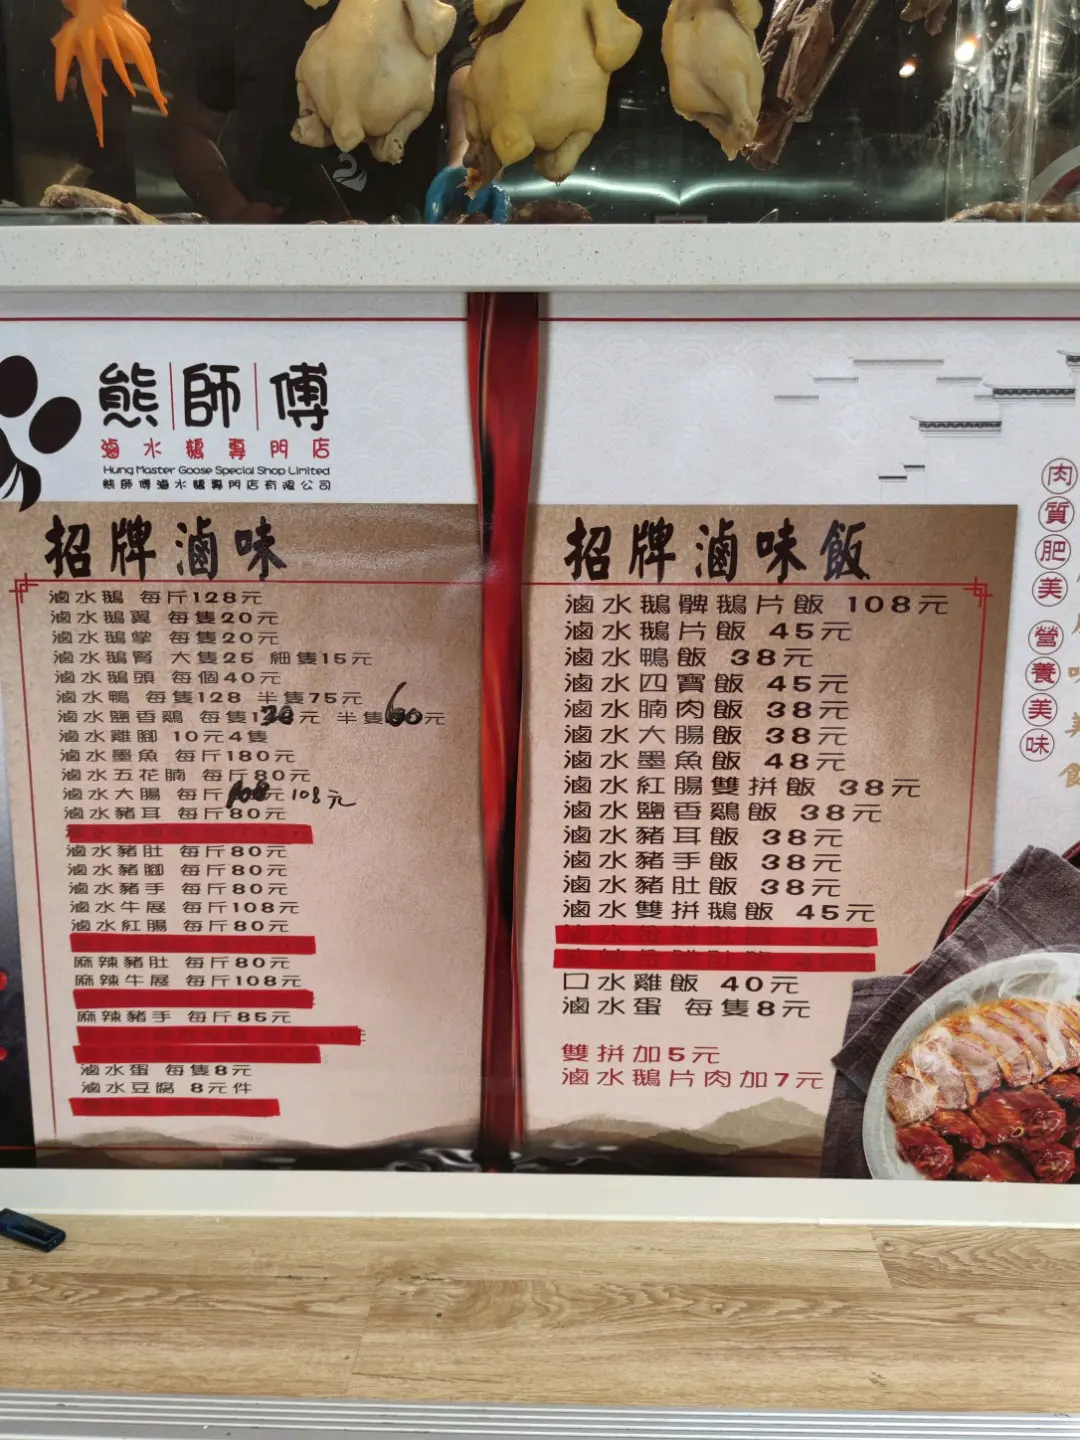 熊師傅
滷水鵝專門店
Hung Master Goose Special Shop Limited
熊師傅滷水鵝專門店有限公司
招牌滷味
滷水鵝 每斤128元
滷水鵝翼 每隻20元
滷水鵝掌 每隻20元
滷水鵝腎 大隻25 細隻15元
滷水鵝頭 每個40元
滷水鴨 每隻128 半隻75元
滷水鹽香鷄 每隻120元 半隻60元
滷水雞腳 10元4隻
滷水墨魚 每斤180元
滷水五花腩 每斤80元
滷水大腸 每斤 元 108元
滷水豬耳 每斤80元
滷水豬肚 每斤80元
滷水豬腳 每斤80元
滷水豬手 每斤80元
滷水牛展 每斤108元
滷水紅腸 每斤80元
麻辣豬肚 每斤80元
麻辣牛展 每斤108元
麻辣豬手 每斤85元
滷水蛋 每隻8元
滷水豆腐 8元件
招牌滷味飯
滷水鵝髀鵝片飯 108元
滷水鵝片飯 45元
滷水鴨飯 38元
滷水四寶飯 45元
滷水腩肉飯 38元
滷水大腸飯 38元
滷水墨魚飯 48元
滷水紅腸雙拼飯 38元
滷水鹽香鷄飯 38元
滷水豬耳飯 38元
滷水豬手飯 38元
滷水豬肚飯 38元
滷水雙拼鵝飯 45元
口水雞飯 40元
滷水蛋 每隻8元
雙拼加5元
滷水鵝片肉加7元
肉質肥美 營養美味